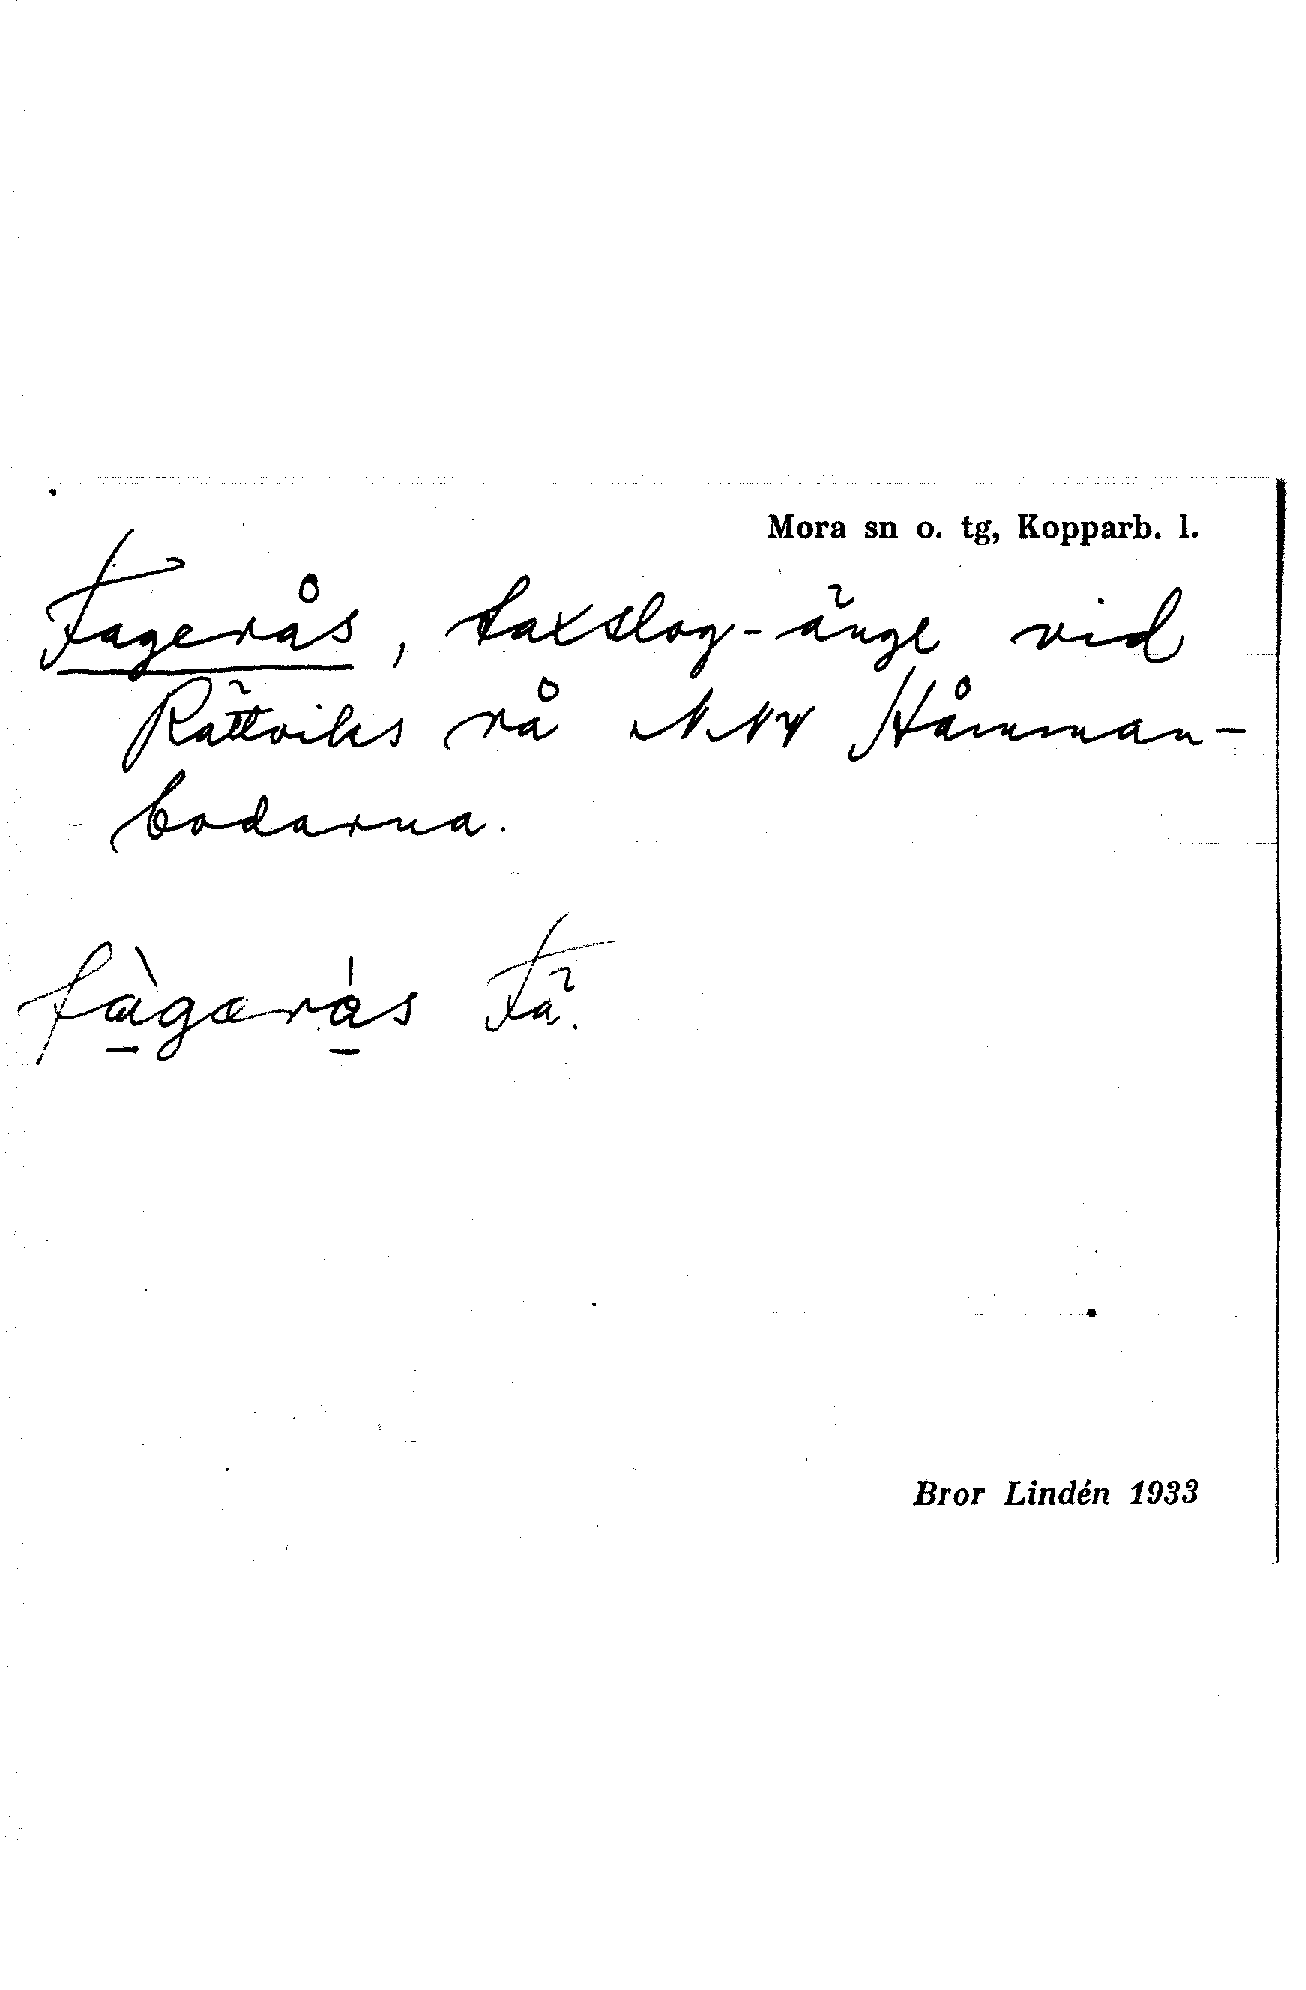 Mora sn o. tg, Kopparb. l.
Fagerås, Laxslog-änge vid
Rättviks rå NNV Håmman-
bodarna.
fàgærás Fä.
Bror Lindén 1933